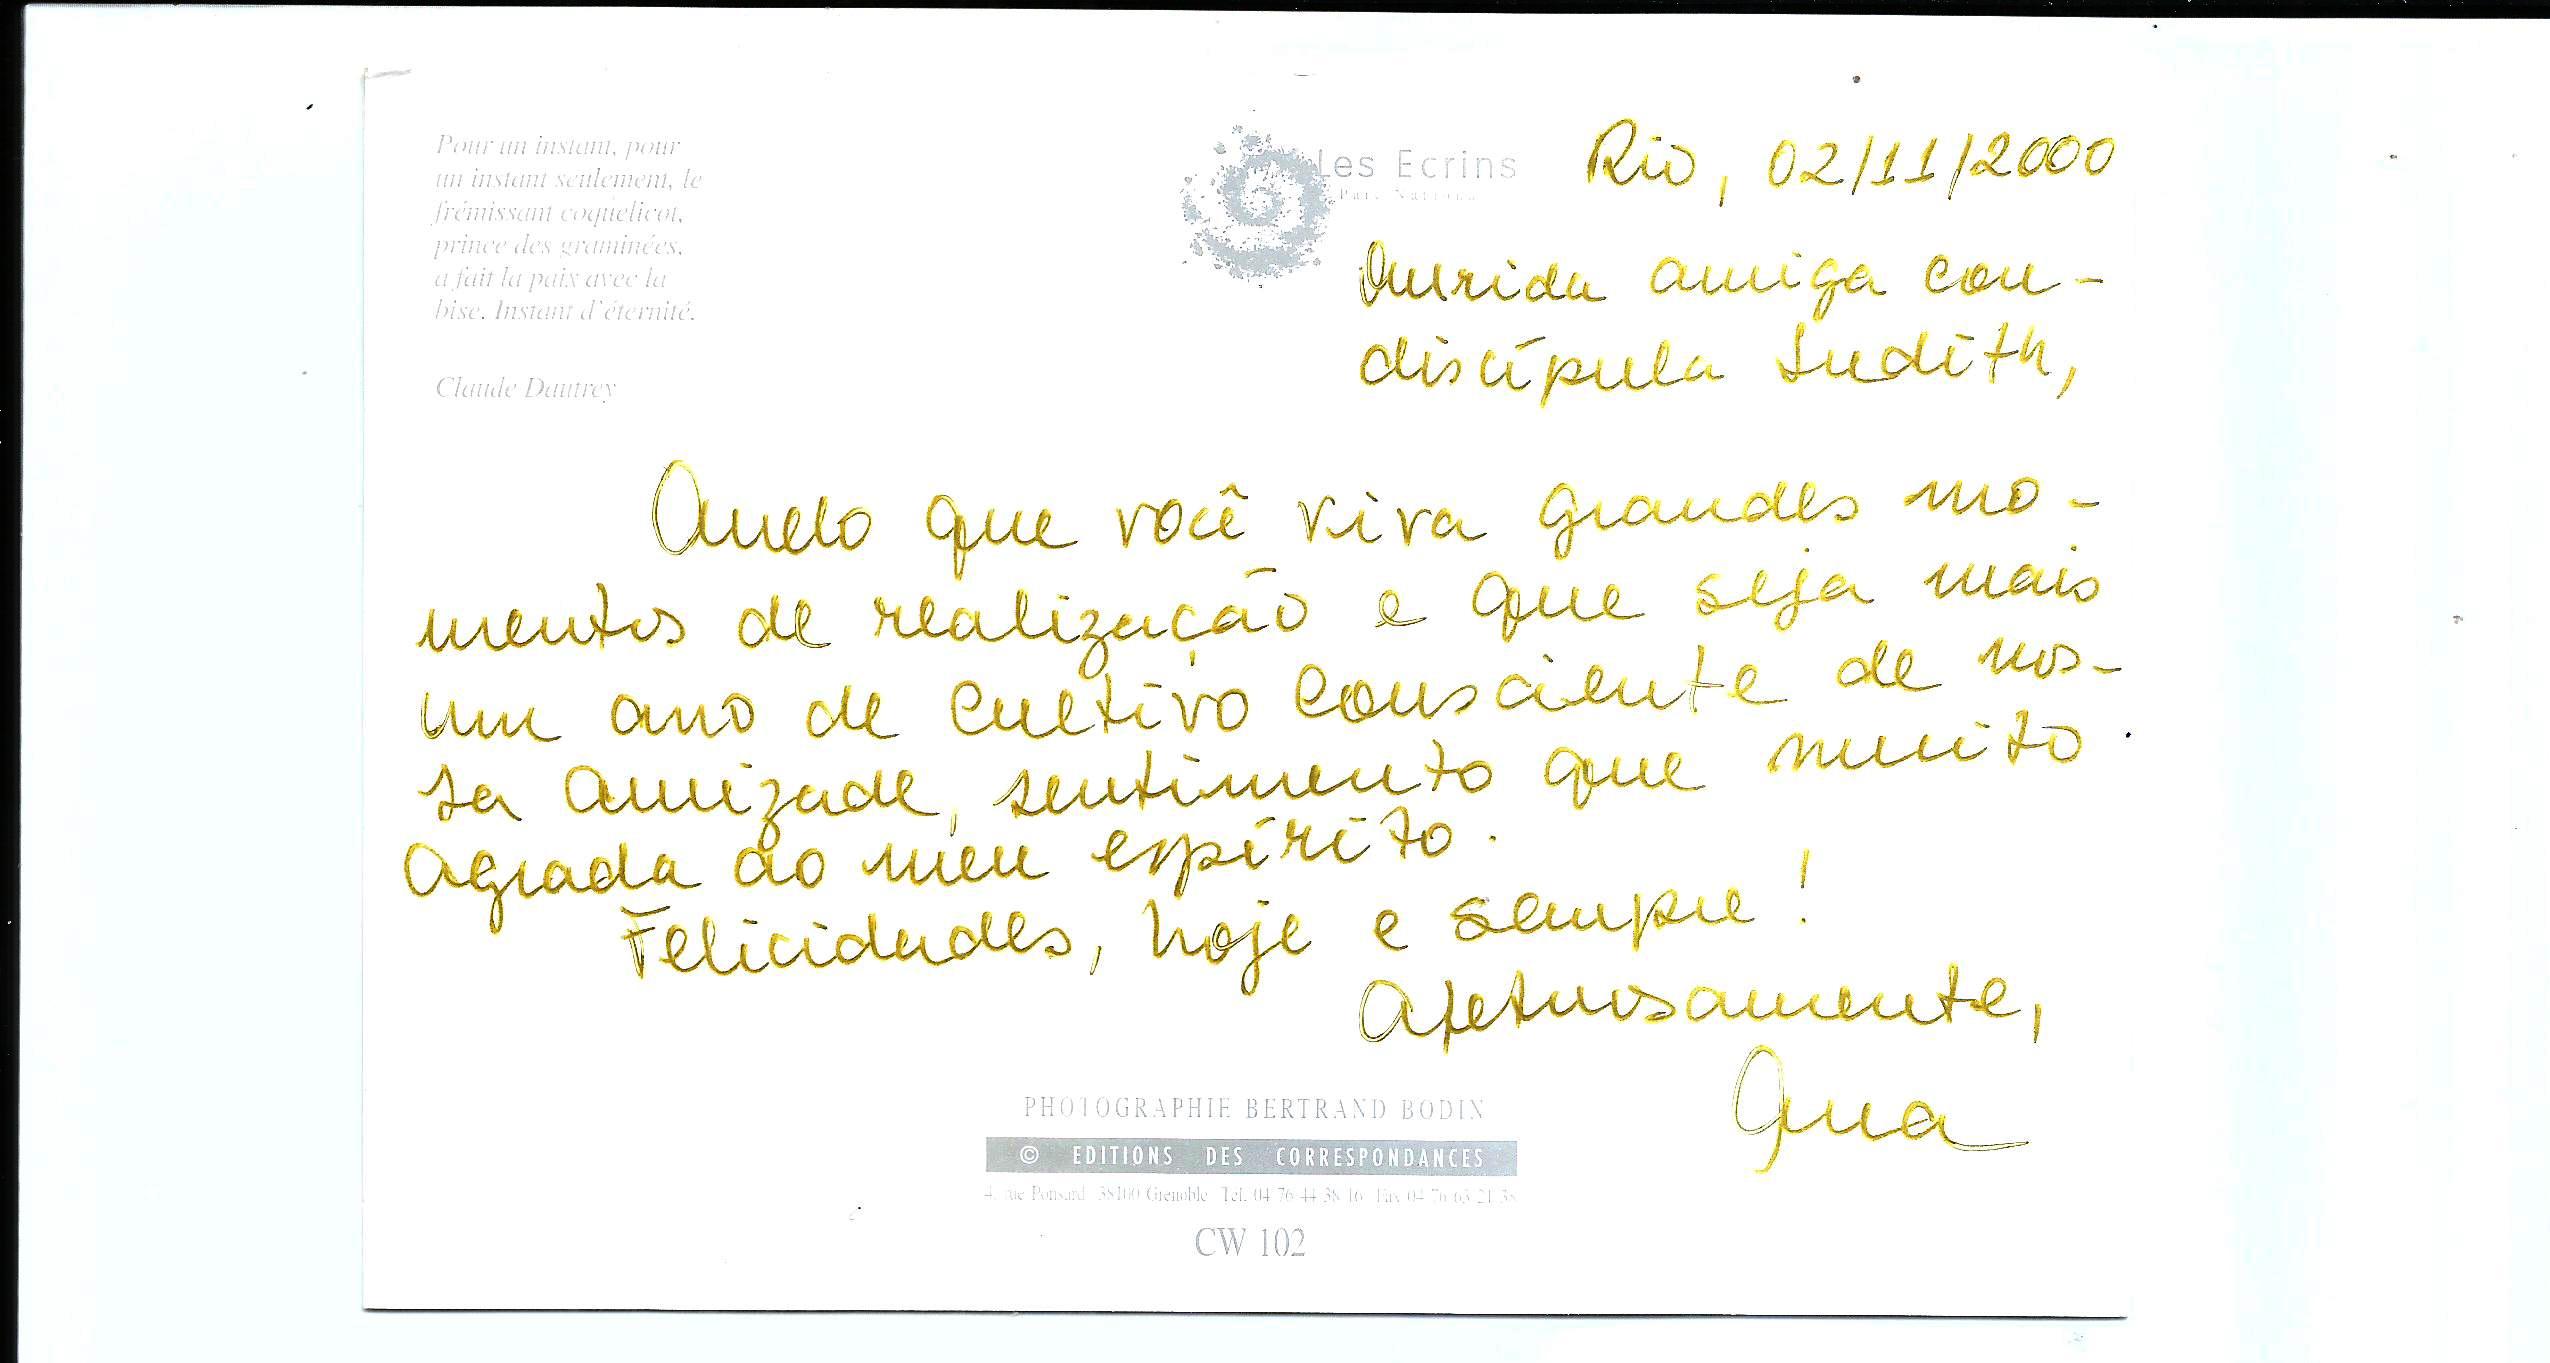 Pour un instant, pour
un instant seulement, le
frémissant coquelicot,
prince des graminées,
a fait la paix avec la
bise. Instant d'éternité.
Claude Dautrey
Les Ecrins
Parc National
Rio, 02/11/2000
Querida amiga con-
discípula Judith,
Anelo que você viva grandes mo-
mentos de realização e que seja mais
um ano de cultivo consciente de nos-
sa amizade, sentimento que muito
agrada ao meu espírito.
Felicidades, hoje e sempre!
Afetuosamente,
PHOTOGRAPHIE BERTRAND BODIN
© EDITIONS DES CORRESPONDANCES
4, rue Ponsard 38100 Grenoble Tel. 04 76 44 38 16 Fax 04 76 63 21 38
CW 102